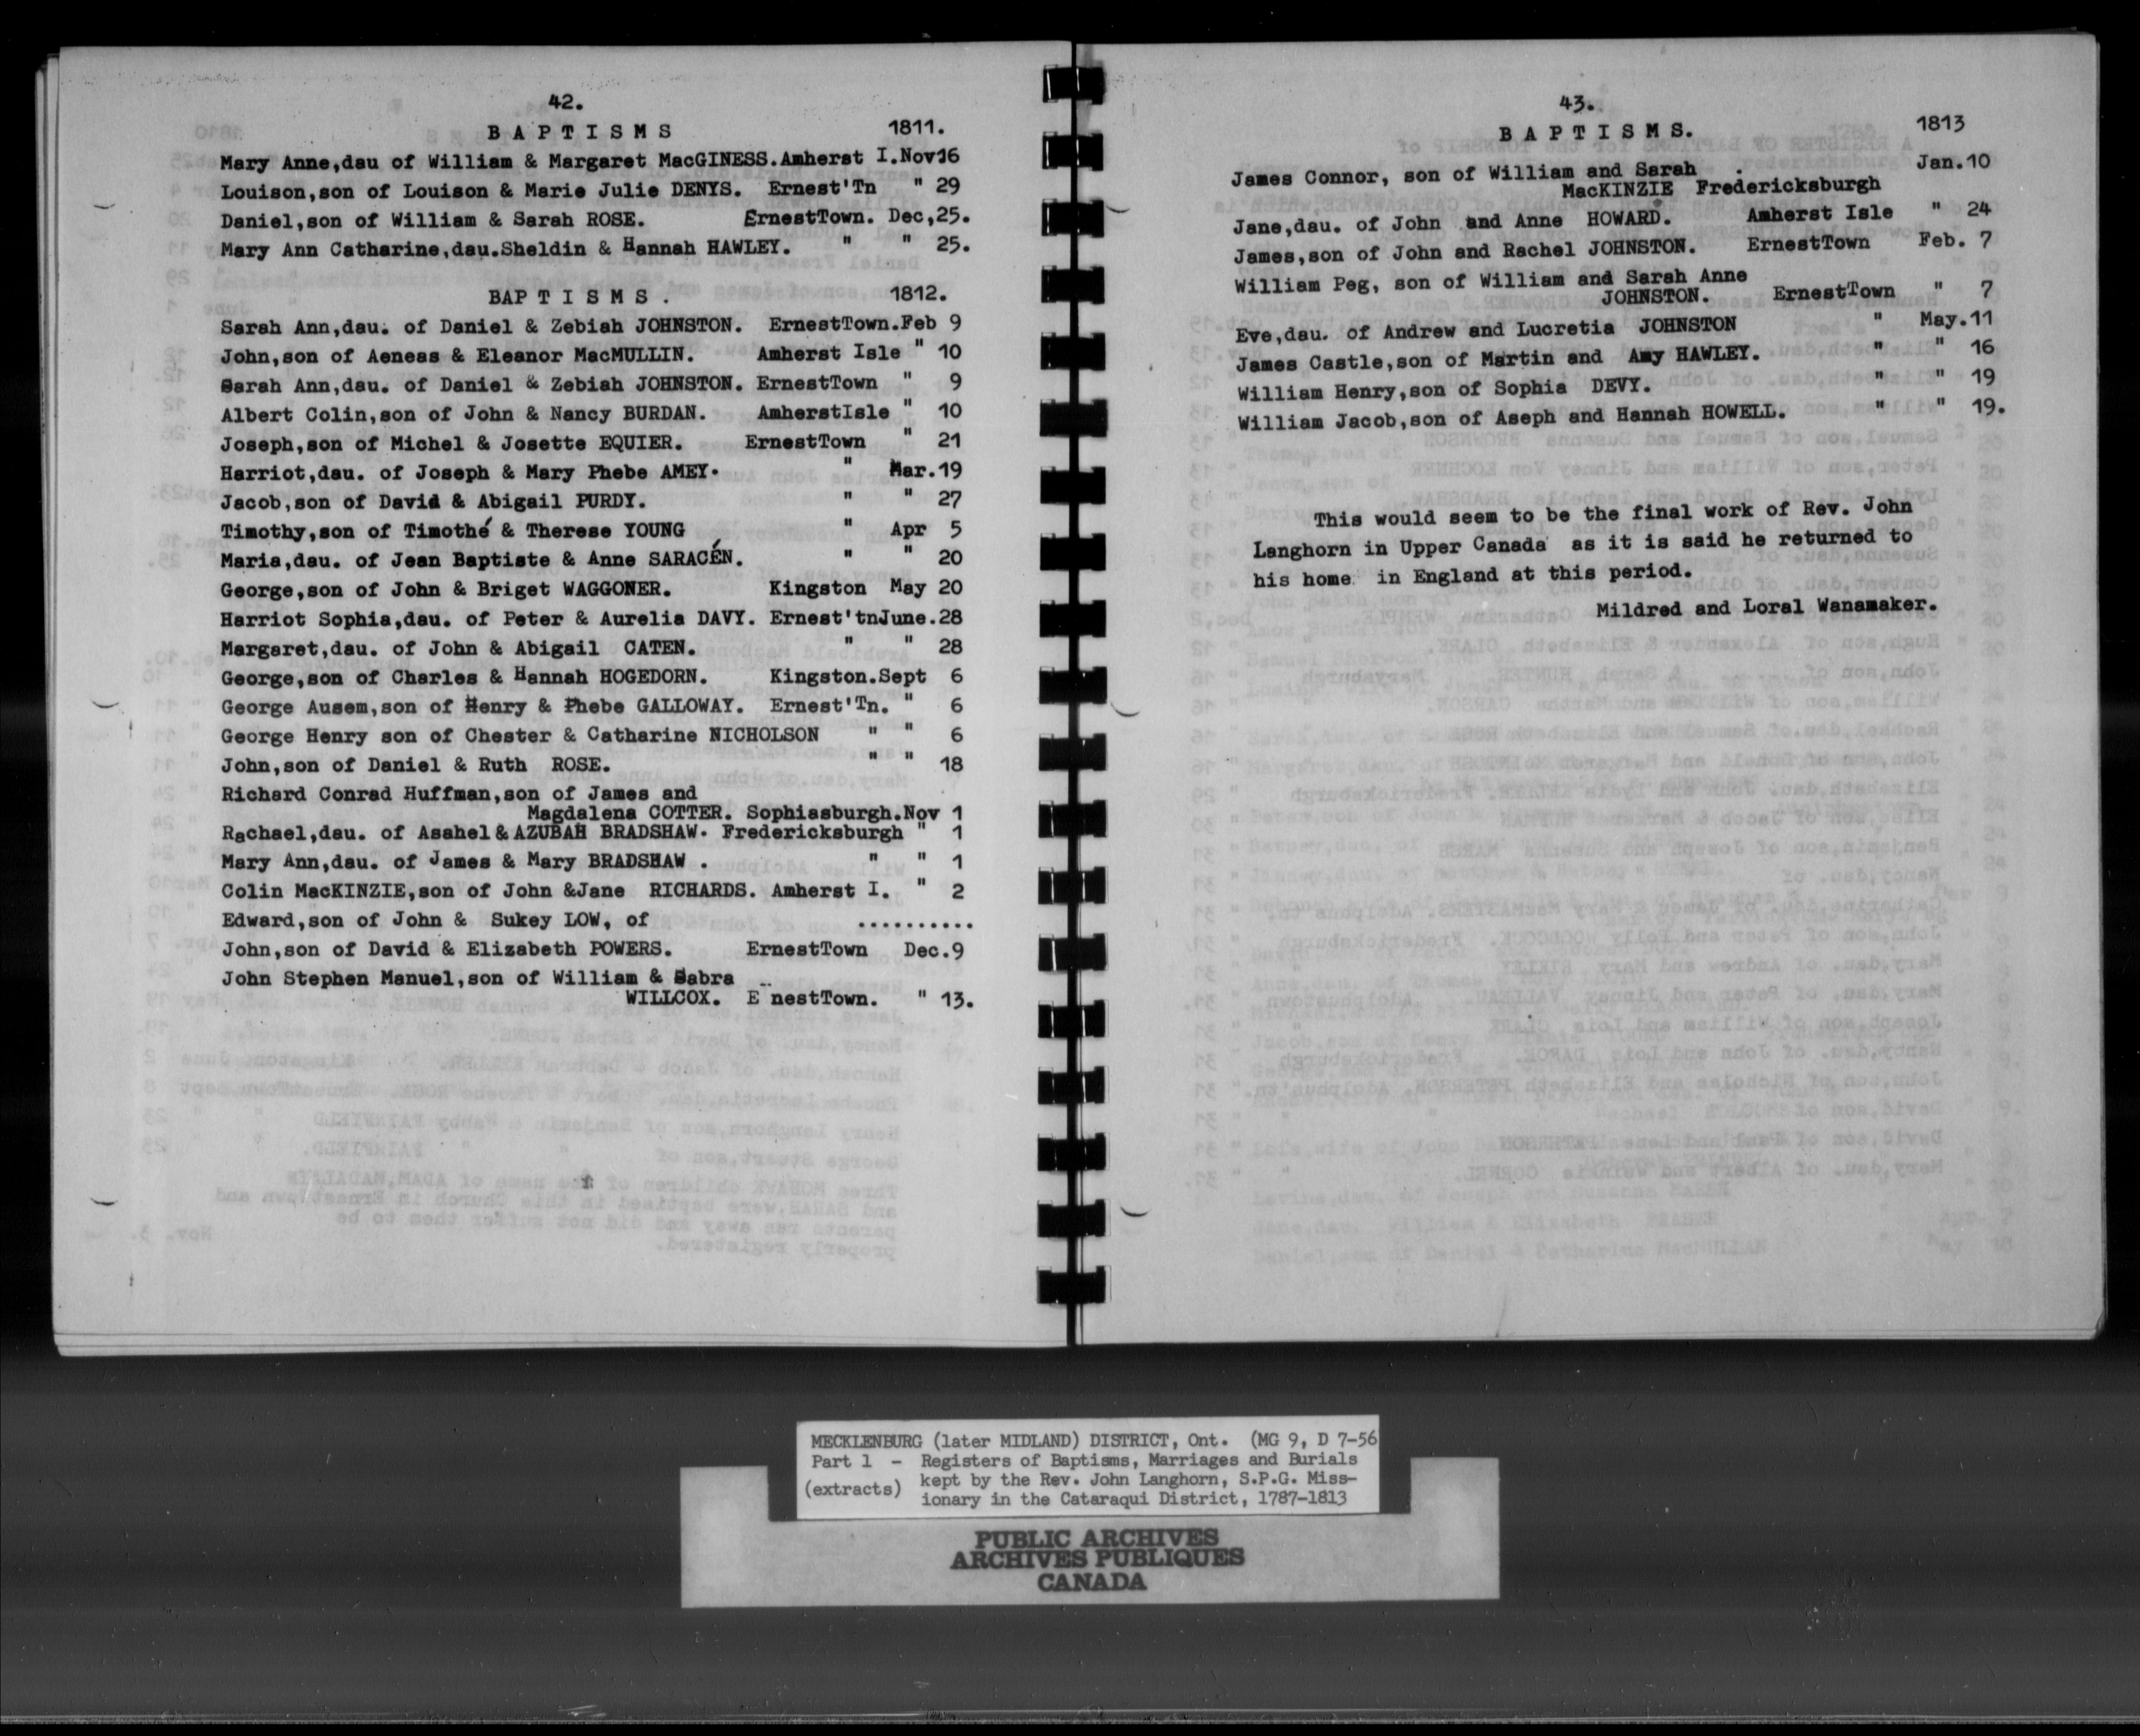 42.
BAPTISMS 1811.
Mary Anne,dau of William & Margaret MacGINESS.Amherst I.Nov16
Louison,son of Louison & Marie Julie DENYS. Ernest'Tn " 29
Daniel,son of William & Sarah ROSE. ErnestTown. Dec,25.
Mary Ann Catharine,dau.Sheldin & Hannah HAWLEY. " " 25.
BAPTISMS. 1812.
Sarah Ann,dau. of Daniel & Zebiah JOHNSTON. ErnestTown.Feb 9
John,son of Aeneas & Eleanor MacMULLIN. Amherst Isle " 10
Sarah Ann,dau. of Daniel & Zebiah JOHNSTON. ErnestTown " 9
Albert Colin,son of John & Nancy BURDAN. AmherstIsle " 10
Joseph,son of Michel & Josette EQUIER. ErnestTown " 21
Harriot,dau. of Joseph & Mary Phebe AMEY. " Mar.19
Jacob,son of David & Abigail PURDY. " " 27
Timothy,son of Timothé & Therese YOUNG " Apr 5
Maria,dau. of Jean Baptiste & Anne SARACÉN. " " 20
George,son of John & Briget WAGGONER. Kingston May 20
Harriot Sophia,dau. of Peter & Aurelia DAVY. Ernest'tnJune.28
Margaret,dau. of John & Abigail CATEN. " " 28
George,son of Charles & Hannah HOGEDORN. Kingston.Sept 6
George Ausem,son of Henry & Phebe GALLOWAY. Ernest'Tn. " 6
George Henry son of Chester & Catharine NICHOLSON " " 6
John,son of Daniel & Ruth ROSE. " " 18
Richard Conrad Huffman,son of James and
Magdalena COTTER. Sophiasburgh.Nov 1
Rachael,dau. of Asahel & AZUBAH BRADSHAW. Fredericksburgh " 1
Mary Ann,dau. of James & Mary BRADSHAW . " " 1
Colin MacKINZIE,son of John &Jane RICHARDS. Amherst I. " 2
Edward,son of John & Sukey LOW, of ..........
John,son of David & Elizabeth POWERS. ErnestTown Dec.9
John Stephen Manuel,son of William & Sabra
WILLCOX. E nestTown. " 13.
43.
BAPTISMS. 1813
James Connor, son of William and Sarah . Jan.10
MacKINZIE Fredericksburgh
Jane,dau. of John and Anne HOWARD. Amherst Isle " 24
James,son of John and Rachel JOHNSTON. ErnestTown Feb. 7
William Peg, son of William and Sarah Anne
JOHNSTON. ErnestTown " 7
Eve,dau. of Andrew and Lucretia JOHNSTON " May.11
James Castle,son of Martin and Amy HAWLEY. " " 16
William Henry,son of Sophia DEVY. " " 19
William Jacob,son of Aseph and Hannah HOWELL. " " 19.
This would seem to be the final work of Rev. John
Langhorn in Upper Canada as it is said he returned to
his home in England at this period.
Mildred and Loral Wanamaker.
MECKLENBURG (later MIDLAND) DISTRICT, Ont. (MG 9, D 7-56
Part 1 - Registers of Baptisms, Marriages and Burials
(extracts) kept by the Rev. John Langhorn, S.P.G. Miss-
ionary in the Cataraqui District, 1787-1813
PUBLIC ARCHIVES
ARCHIVES PUBLIQUES
CANADA